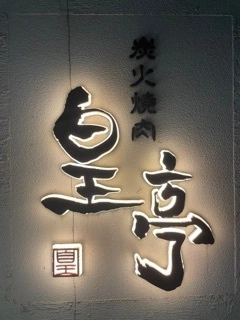 炭火焼肉
皇亭
皇